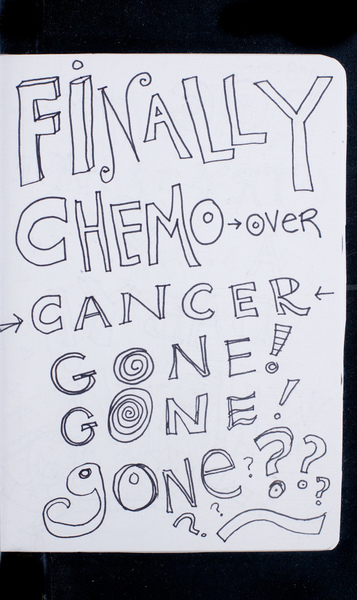 FiNALLY
CHEMO → OVER
→ CANCER ←
GONE!
GONE!
gONe? ???
???